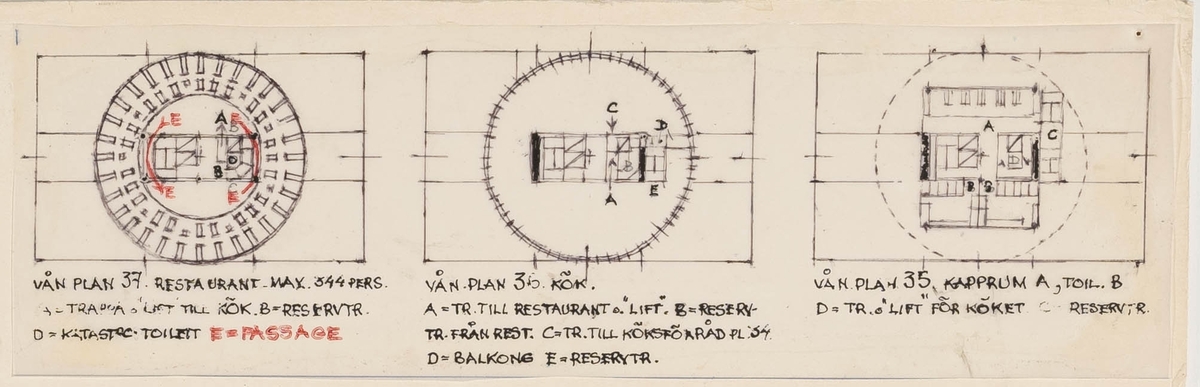 E
A
B
D
E
E
VÅN PLAN 37. RESTAURANT MAX. 344 PERS.
A = TRAPPA o. "LIFT" TILL KÖK. B = RESERVTR.
D = KATASTR. TOILETT E = PASSAGE
C
D
B
A
E
VÅN. PLAN 36. KÖK.
A = TR. TILL RESTAURANT o. "LIFT". B = RESERV-
TR. FRÅN REST. C = TR. TILL KÖKSFÖRRÅD PL. 34.
D = BALKONG E = RESERVTR.
A
C
D
B
VÅN. PLAN 35, KAPPRUM A, TOIL. B
D = TR. o. "LIFT" FÖR KÖKET C = RESERVTR.